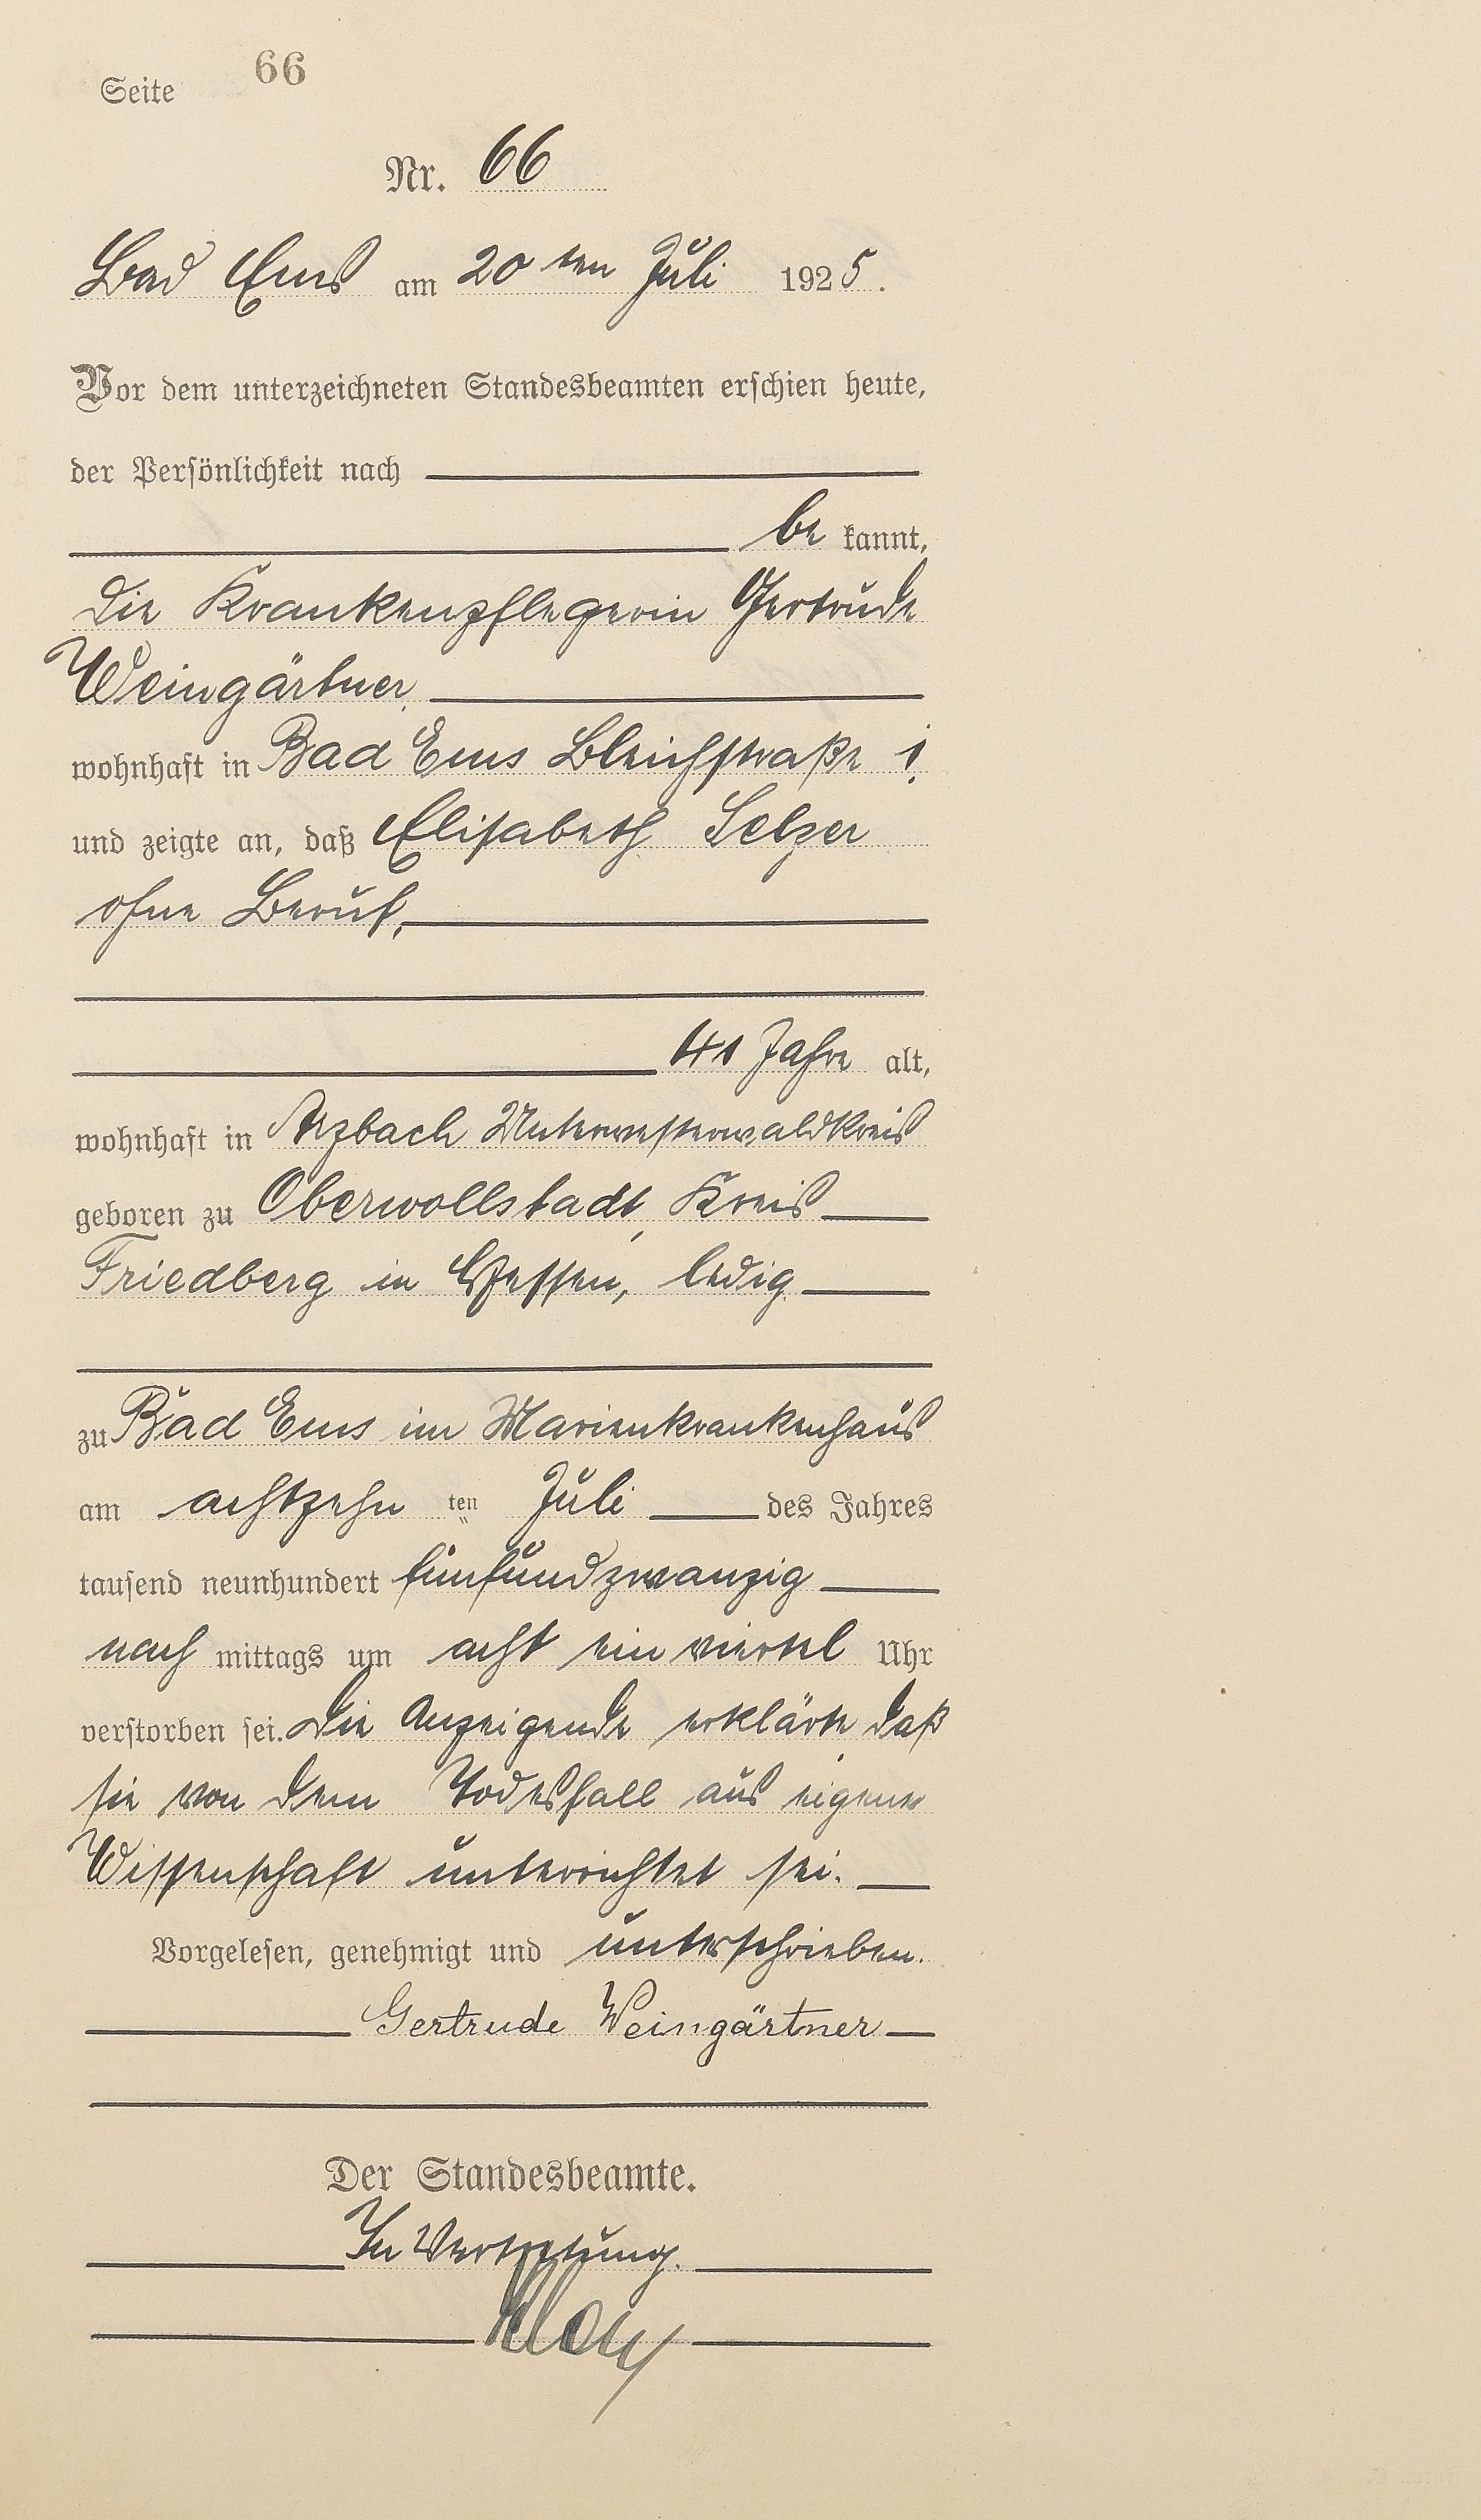 66
Seite
Nr. 66
Bad Ems am 20 ten Juli 1925.
Vor dem unterzeichneten Standesbeamten erschien heute,
der Persönlichkeit nach
be kannt,
die Krankenpflegerin Gertrude
Weingärtner
wohnhaft in Bad Ems Bleichstraße 1.
und zeigte an, daß Elisabeth Selzer
ohne Beruf,
41 Jahre alt,
wohnhaft in Arzbach Unterwesterwaldkreis
geboren zu Oberwollstadt, Kreis
Friedberg in Hessen, ledig
zu Bad Ems im Marienkrankenhaus
am achtzehn ten Juli des Jahres
tausend neunhundert fünfundzwanzig
nach mittags um acht ein viertel Uhr
verstorben sei. Die Anzeigende erklärte, daß
sie von dem Todesfall aus eigener
Wissenschaft unterrichtet sei.
Vorgelesen, genehmigt und unterschrieben.
Gertrude Weingärtner
Der Standesbeamte.
In Vertretung.